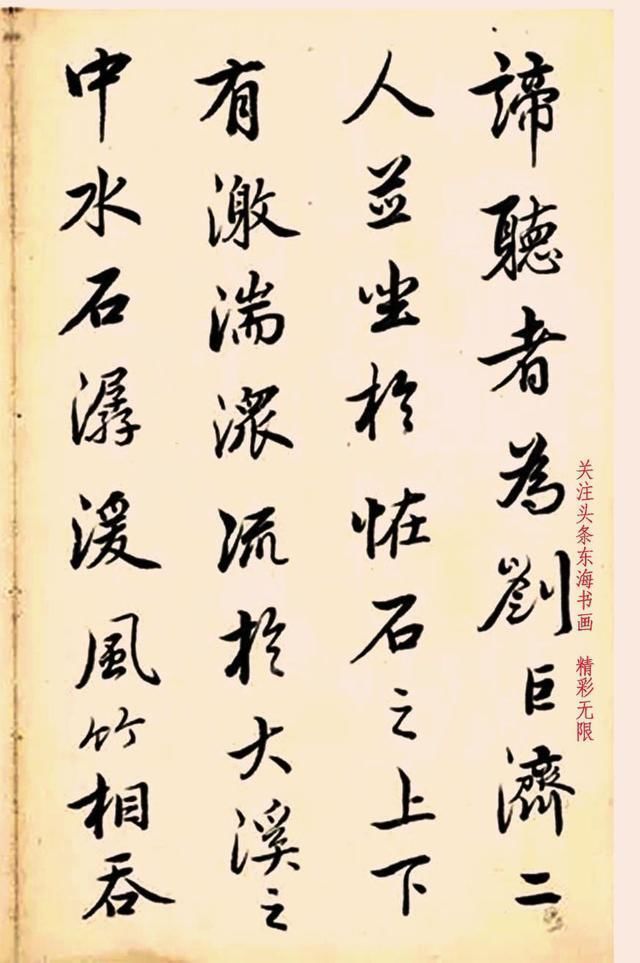 諦聽者為劉巨濟二
人並坐於怪石之上下
有激湍潀流於大溪之
中水石潺湲風竹相吞
关注头条东海书画 精彩无限